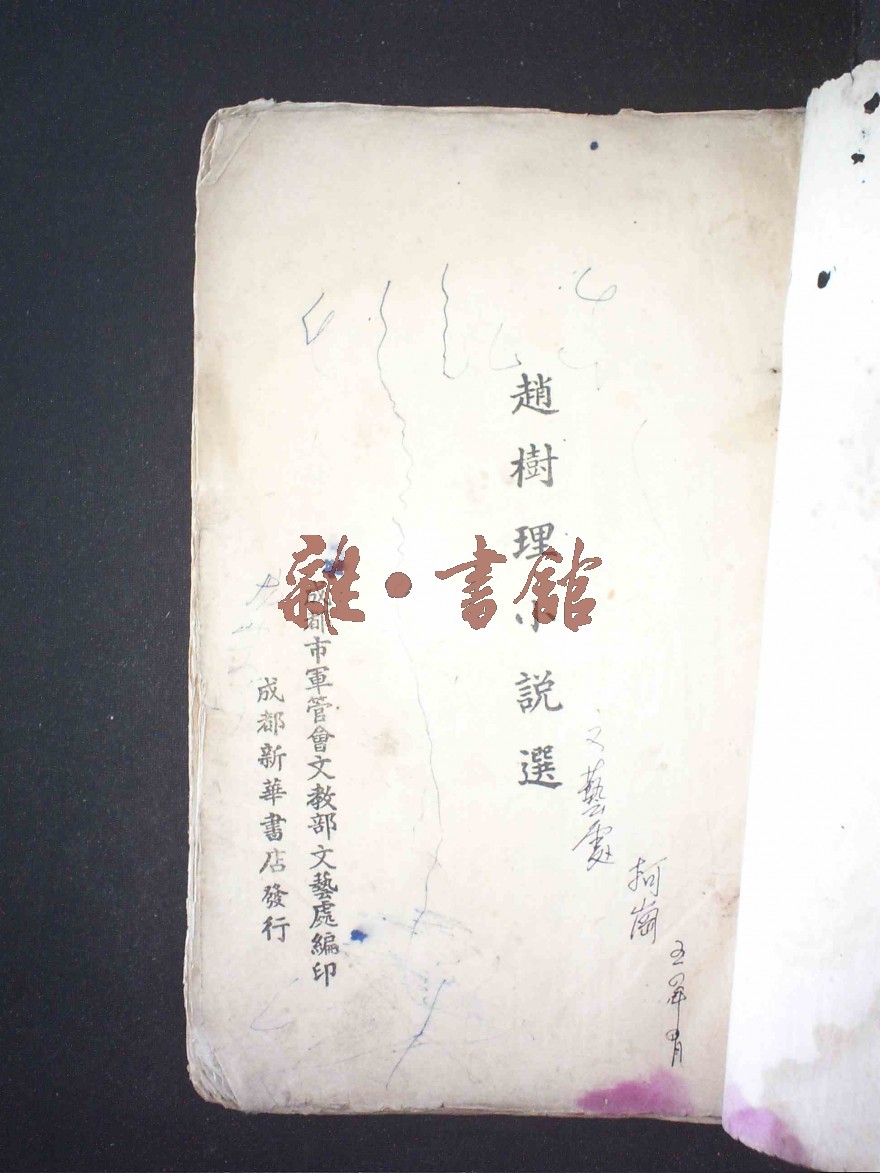 文藝處
柯崗
趙樹理小説選
成都市軍管會文教部文藝處編印
成都新華書店發行
雜·書館